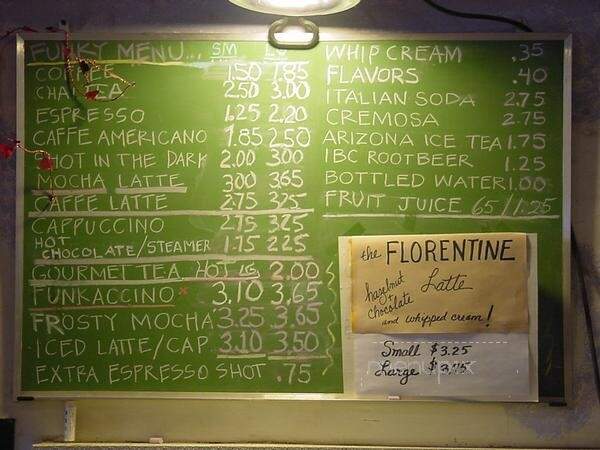 FUNKY MENU... SM LG
COFFEE 1.50 1.85
CHAI TEA 2.50 3.00
ESPRESSO 1.25 2.20
CAFFE AMERICANO 1.85 2.50
SHOT IN THE DARK 2.00 3.00
MOCHA LATTE 3.00 3.65
CAFFE LATTE 2.75 3.25
CAPPUCCINO 2.75 3.25
HOT
CHOCOLATE/STEAMER 1.75 2.25
GOURMET TEA, HOT LG 2.00
FUNKACCINO * 3.10 3.65
FROSTY MOCHA 3.25 3.65
ICED LATTE/CAP 3.10 3.50
EXTRA ESPRESSO SHOT .75
WHIP CREAM .35
FLAVORS .40
ITALIAN SODA 2.75
CREMOSA 2.75
ARIZONA ICE TEA 1.75
IBC ROOTBEER 1.25
BOTTLED WATER 1.00
FRUIT JUICE 65/1.25
the FLORENTINE
Latte
hazelnut
+
chocolate
and whipped cream!
Small $3.25
Large $3.75